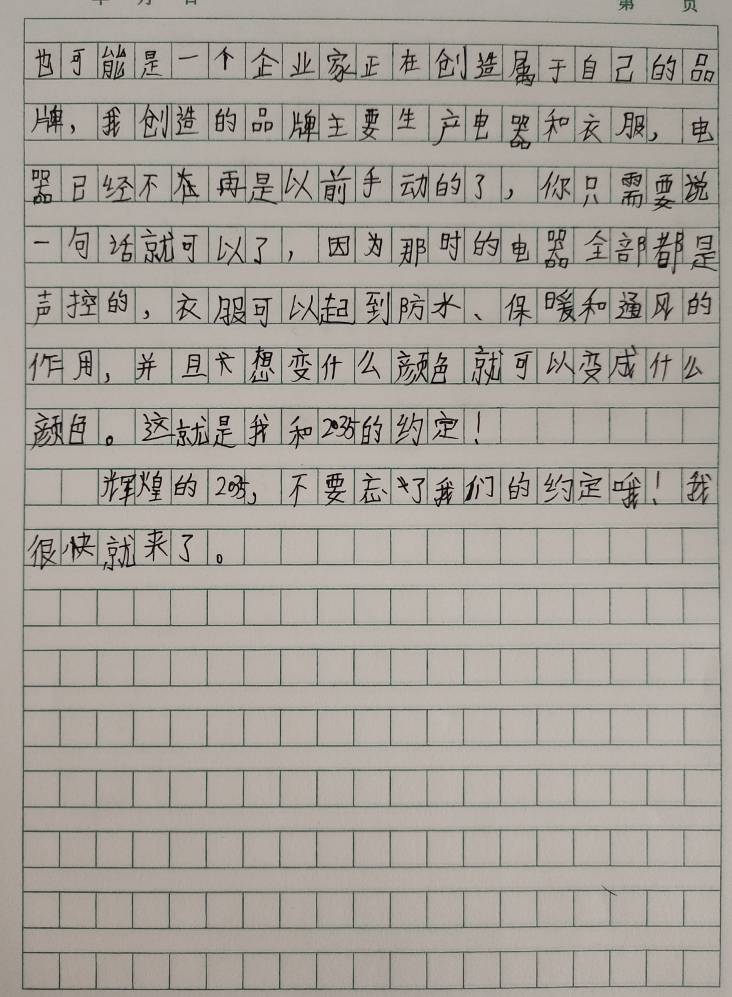 年 月 日 第 页
也可能是一个企业家正在创造属于自己的品
牌，我创造的品牌主要生产电器和衣服，电
器已经不在再是以前手动的了，你只需要说
一句话就可以了，因为那时的电器全部都是
声控的，衣服可以起到防水、保暖和通风的
作用，并且想变什么颜色就可以变成什么
颜色。这就是我和2035的约定！
辉煌的2035，不要忘了我们的约定哦！我
很快就来了。